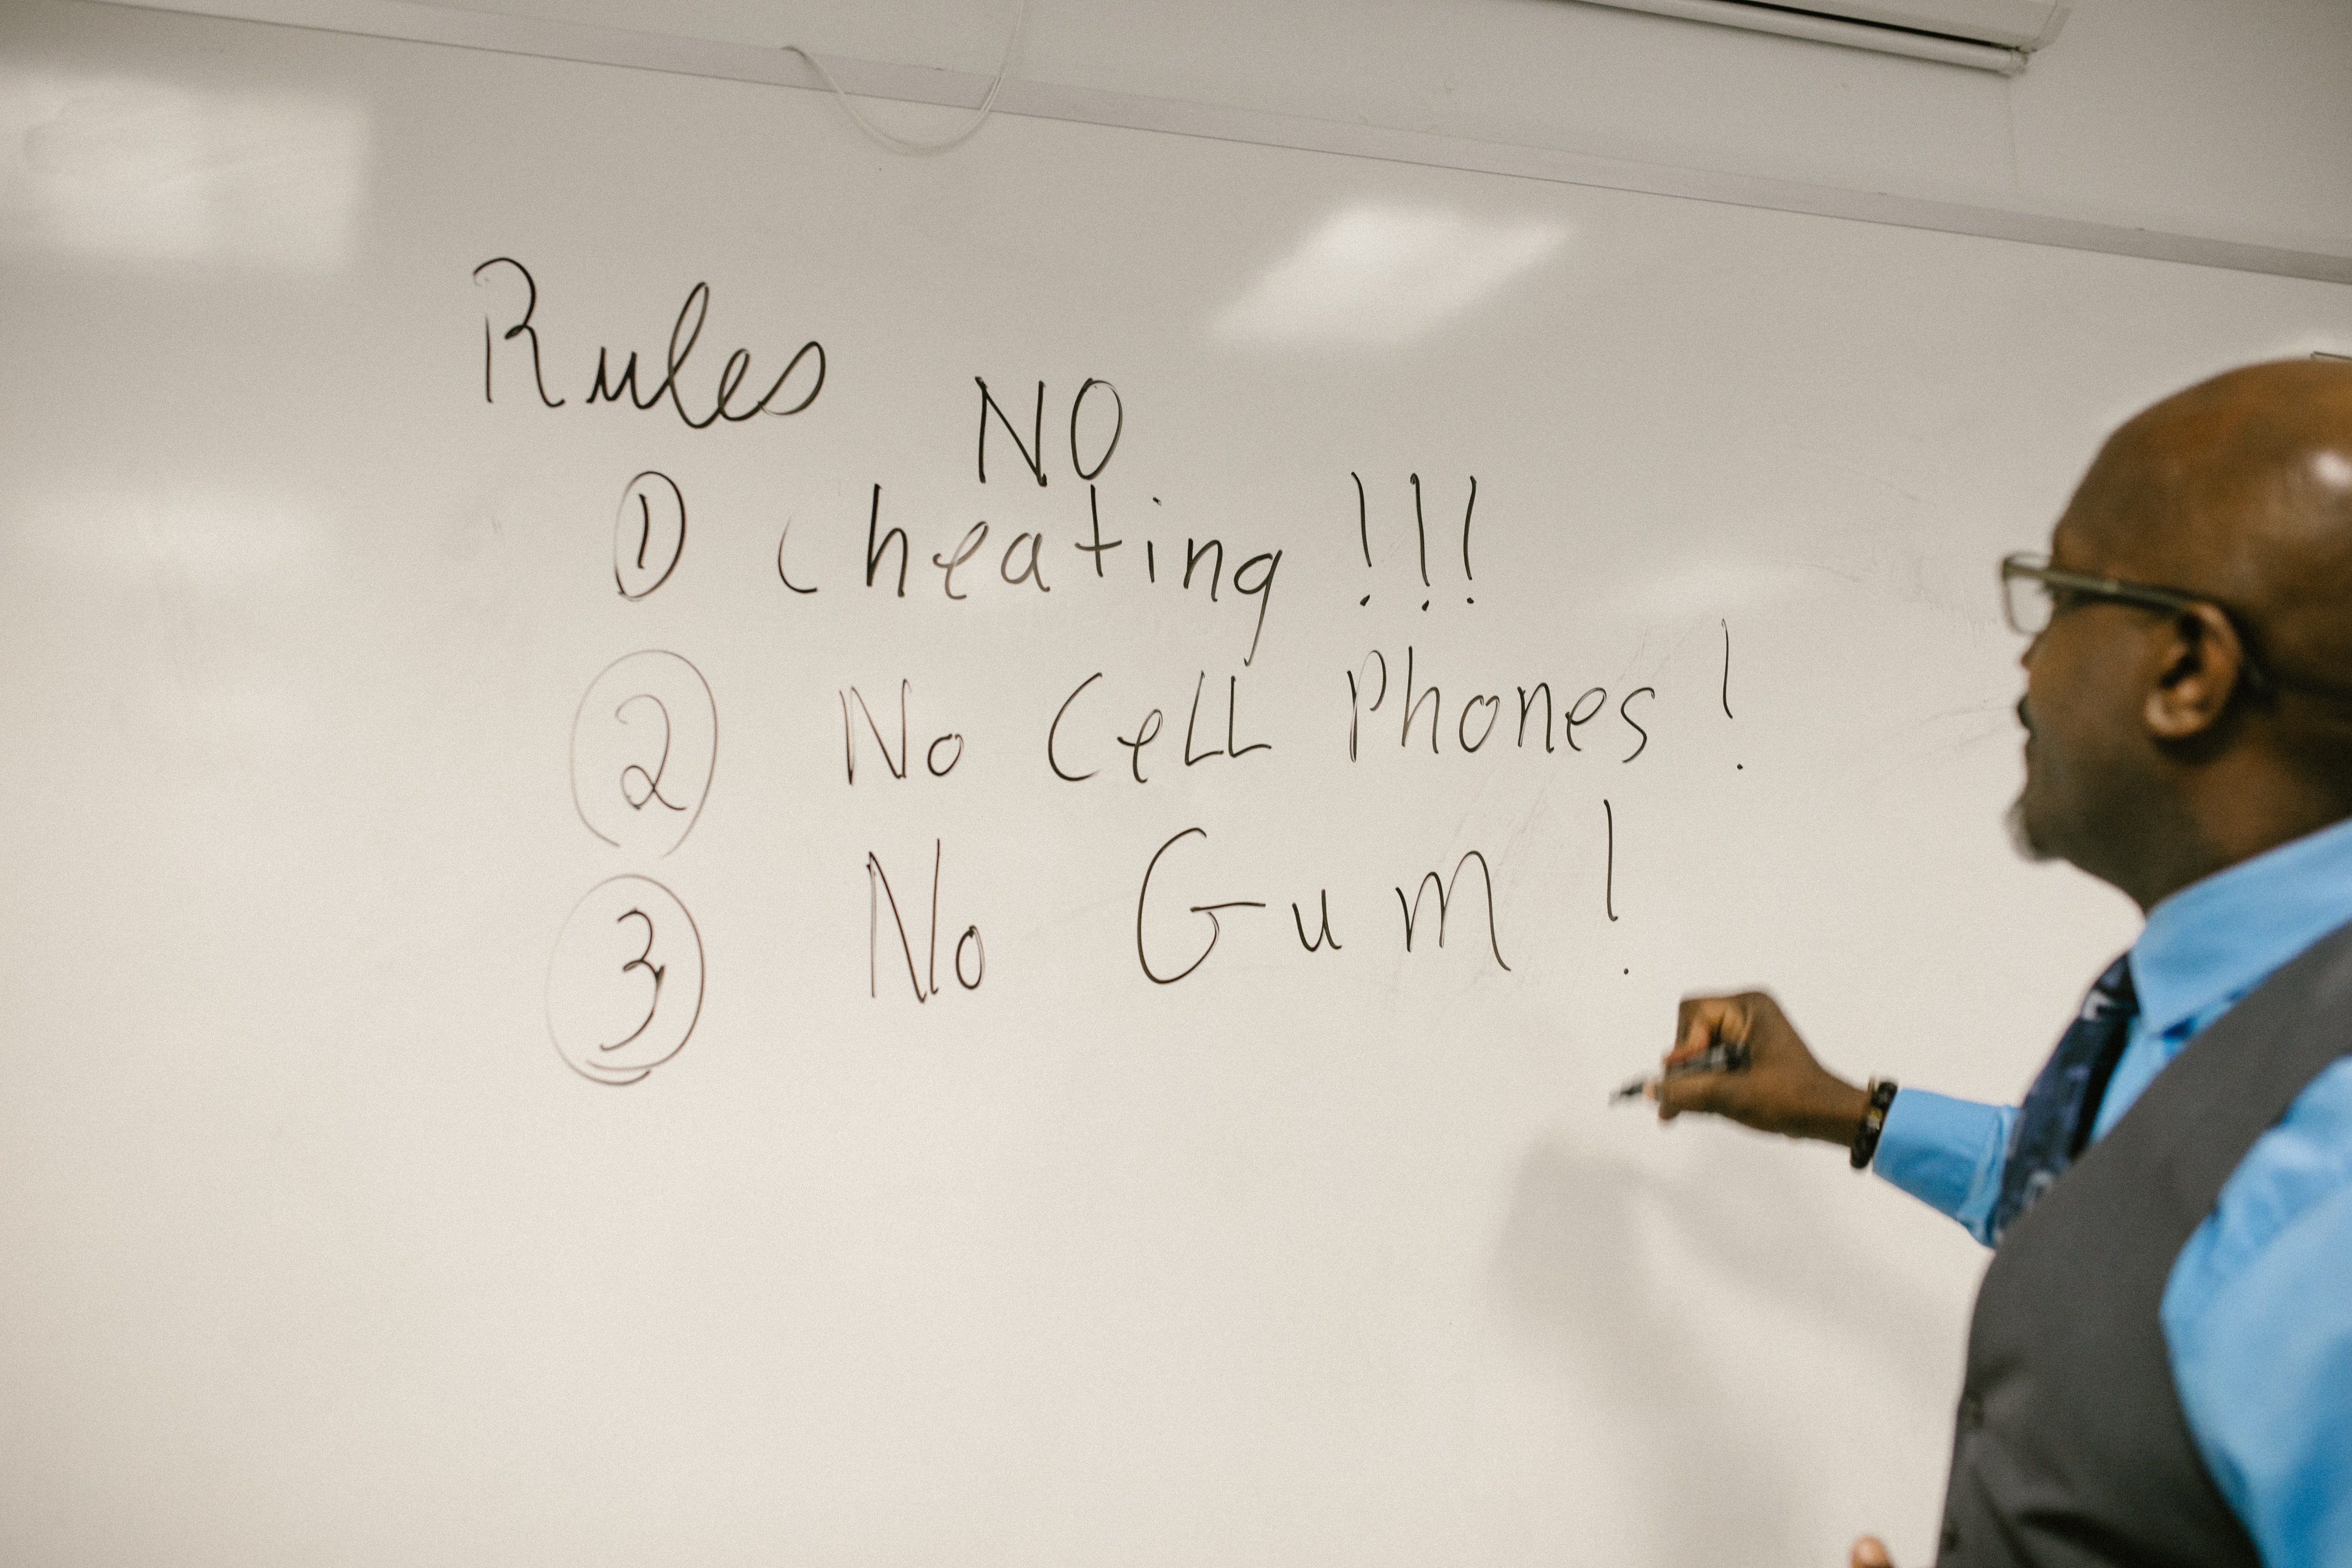 Rules
NO
① cheating !!!
② No CeLL Phones !
③ No Gum !